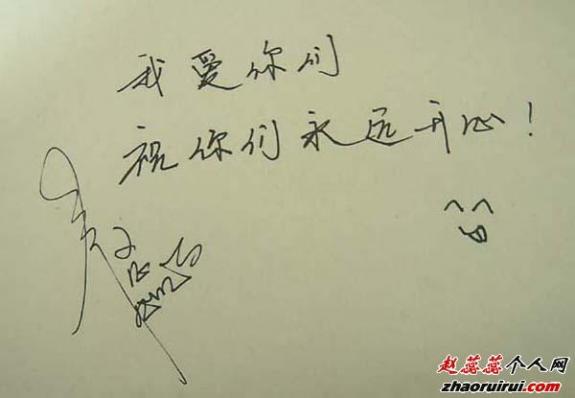 我爱你们
祝你们永远开心！
赵蕊蕊个人网
zhaoruirui.com